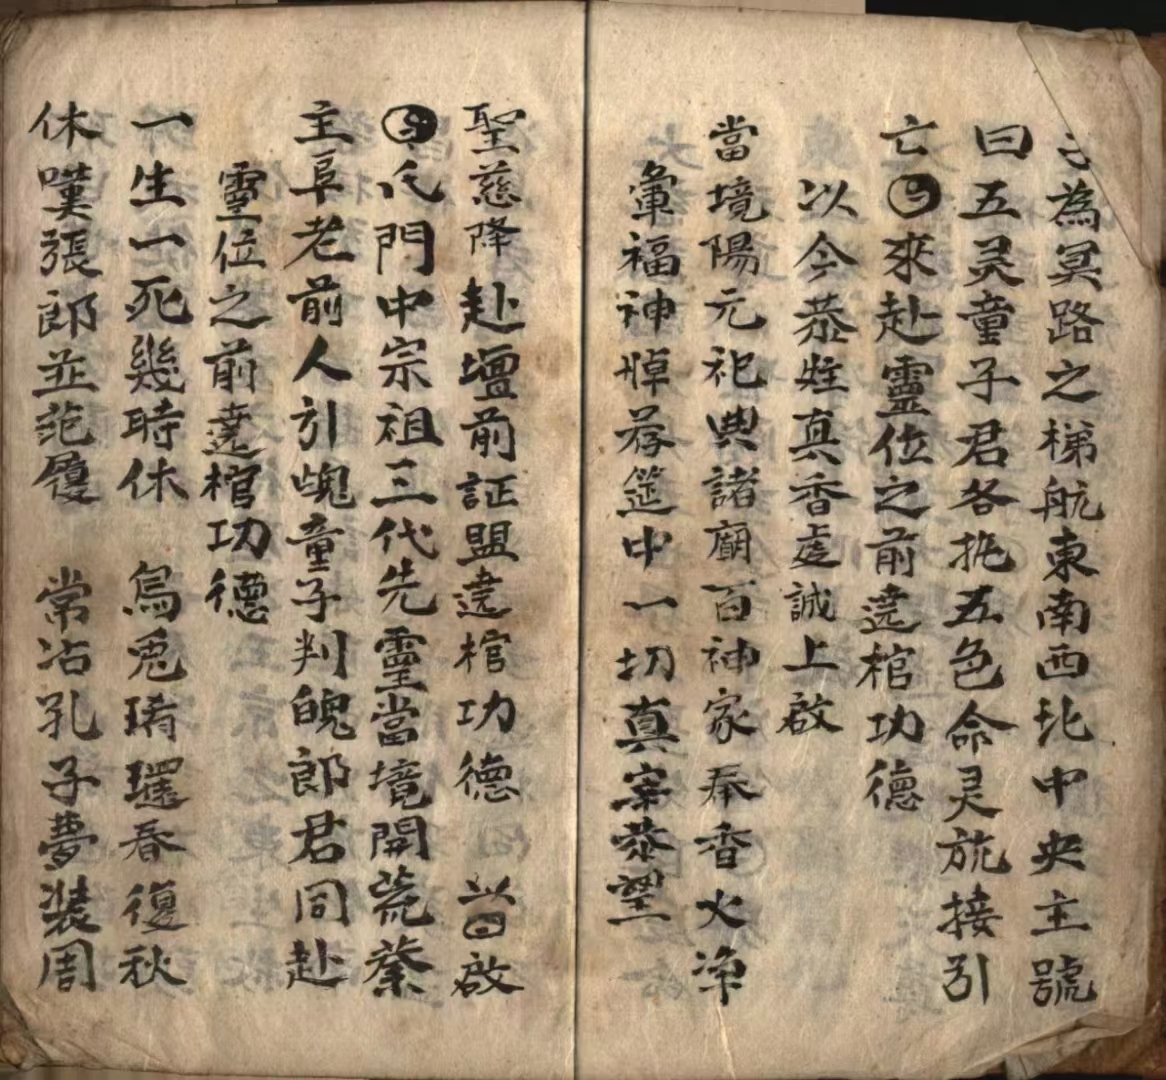 為冥路之梯航東南西北中央主號
曰五灵童子君各執五色命灵旎接引
亡來赴靈位之前遶棺功德
以今恭炷真香虔誠上啟
當境陽元祀典諸廟百神家奉香火净
彙福神悼荐筵中一切真宰恭望
聖慈降赴壇前証盟遶棺功德 啟
氏門中宗祖三代先靈當境開荒蓁
主阜老前人引魂童子判魄郎君同赴
靈位之前遶棺功德
一生一死幾時休 烏兎循環春復秋
休嘆張郎並范履 常沾孔子夢装周